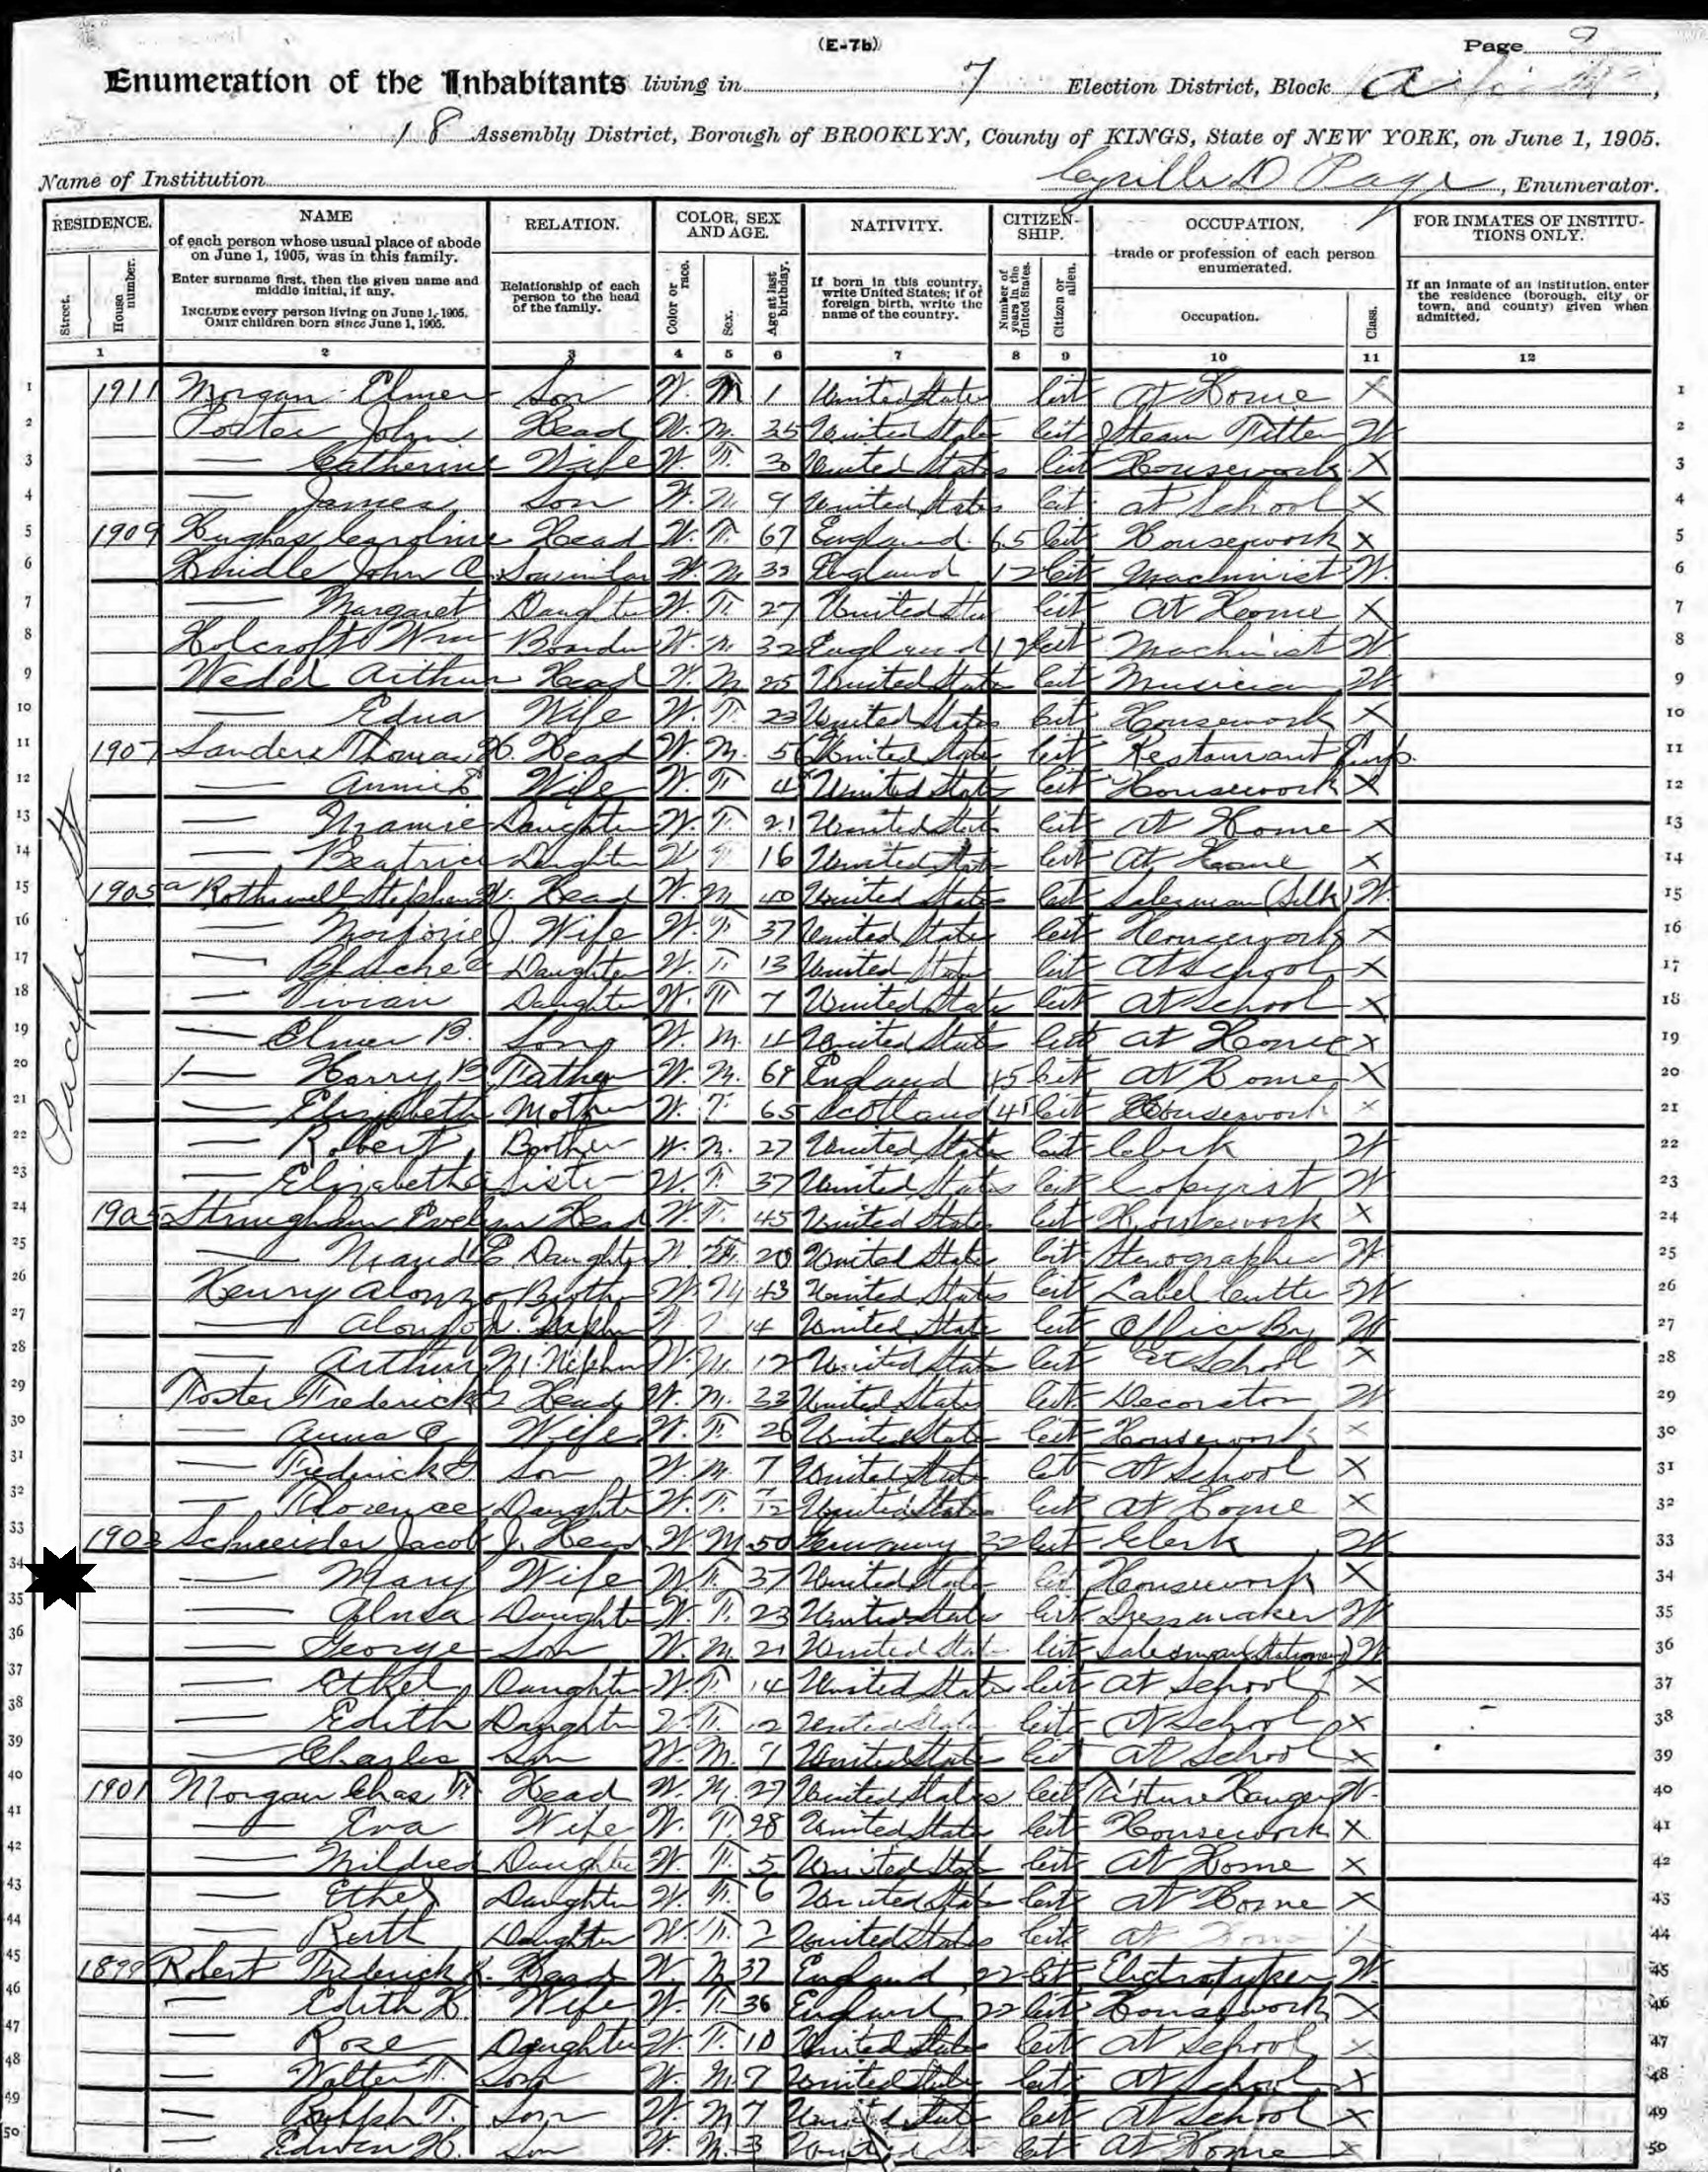 (E-7b)
Page
Enumeration of the Inhabitants living in 7 Election District, Block
18 Assembly District, Borough of BROOKLYN, County of KINGS, State of NEW YORK, on June 1, 1905.
Name of Institution Cyrille D Page, Enumerator.
RESIDENCE. NAME RELATION. COLOR, SEX AND AGE. NATIVITY. CITIZEN-SHIP. OCCUPATION, FOR INMATES OF INSTITU-TIONS ONLY.
Street. House number. of each person whose usual place of abode on June 1, 1905, was in this family. Enter surname first, then the given name and middle initial, if any. INCLUDE every person living on June 1, 1905. OMIT children born since June 1, 1905. Relationship of each person to the head of the family. Color or race. Sex. Age at last birthday. If born in this country, write United States; if of foreign birth, write the name of the country. Number of years in the United States. Citizen or alien. trade or profession of each person enumerated. Occupation. Class. If an inmate of an institution, enter the residence (borough, city or town, and county) given when admitted.
1 2 3 4 5 6 7 8 9 10 11 12
Pacific St
1 1911 Morgan Elmer Son W. M 1 United States Cit At Home X 1
2 Foster John Head W. M. 35 United States Cit Steam Fitter W 2
3 — Catherine Wife W. F. 30 United States Cit Housework X 3
4 — James Son W. M. 9 United States Cit at School X 4
5 1909 Hughes Caroline Head W. F. 67 England 65 Cit Housework X 5
6 John Soninlaw W. M. England 12 Cit Machinist W. 6
7 — Margaret Daughter W. F. 27 United States Cit At Home X 7
8 Holcroft Wm Boarder W. M. 32 England 12 Cit Machinist W. 8
9 Wedel Arthur Head W. M. 25 United States Cit Musician W 9
10 — Edna Wife W. F. 23 United States Cit Housework X 10
11 1907 Sanders Thomas H. Head W. M. 5 United States Cit Restaurant Emp. 11
12 — Annie E Wife W. F 4 United States Cit Housework X 12
13 — Mamie Daughter W. F. 21 United States Cit At Home X 13
14 — Beatrice Daughter W F 16 United States Cit At Home X 14
15 1905a Rothwell Stephen W. Head W. M. 40 United States Cit Salesman (Silk) W. 15
16 — Marjorie J. Wife W. F. 37 United States Cit Housework X 16
17 — Blanche Daughter W. F. 13 United States Cit At School X 17
18 — Vivian Daughter W. F 7 United States Cit At School X 18
19 — Elmer B. Son W. M. 4 United States Cit At Home X 19
20 — Harry B Father W. M. England 45 Cit At Home X 20
21 — Elizabeth Mother W. F. 65 Scotland 45 Cit Housework X 21
22 — Robert Brother W. M. 27 United States Cit Clerk W 22
23 — Elizabeth Sister W. F. 37 United States Cit Copyist W 23
24 1905 Stringham Evelyn Head W. F. 45 United States Cit Housework X 24
25 — Maud E Daughter W. F. 20 United States Cit Stenographer W 25
26 Henry Alonzo Brother W. M 43 United States Cit Label Cutter W 26
27 — Alonzo Nephew 14 United States Cit Office Boy W 27
28 — Arthur Nephew W. M. 12 United States Cit At School X 28
29 Foster Frederick G Head W. M. 33 United States Cit. Decorator W 29
30 — Anna C Wife W. F. 26 United States Cit Housework X 30
31 — Frederick G Son W. M. 7 United States Cit At School X 31
32 — Florence Daughter W. F. 7/12 United States Cit At Home X 32
33 1903 Schneider Jacob J. Head W. M. 50 Germany 32 Cit Clerk W 33
34 — Mary Wife W F. 37 United States Cit Housework X 34
35 — Daughter W. F. 23 United States Cit Dressmaker W 35
36 — George Son W. M. 21 United States Cit Salesman (Stationery) W 36
37 — Ethel Daughter W. F. 14 United States Cit At School X 37
38 — Edith Daughter W. F. 12 United States Cit At School X 38
39 — Charles Son W. M. 7 United States Cit At School X 39
40 1901 Morgan Chas F. Head W. M. 27 United States Cit Fixture Hanger W. 40
41 — Eva Wife W. F. 28 United States Cit Housework X 41
42 — Mildred Daughter W. F. 5 United States Cit At Home X 42
43 — Ethel Daughter W. F. 6 United States Cit At Home X 43
44 — Ruth Daughter W. F. 2 United States Cit At Home 44
45 1899 Robert Frederick Head W. M 37 England 22 Cit Electrotyper W. 45
46 — Edith H. Wife W. F. 36 England 22 Cit Housework X 46
47 — Rose Daughter W. F. 10 United States Cit At School X 47
48 — Walter F. Son W. M. 7 United States Cit At School X 48
49 — Ralph T. Son W. M 7 United States Cit At School X 49
50 — Edwin H. Son W. M. 3 United States Cit At Home X 50